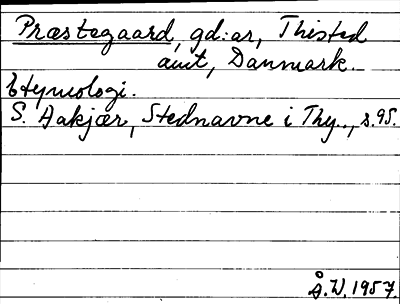 Præstegaard, gd:ar, Thisted
amt, Danmark.
Etymologi.
S. Aakjær, Stednavne i Thy., s.95.
Å.W. 1957